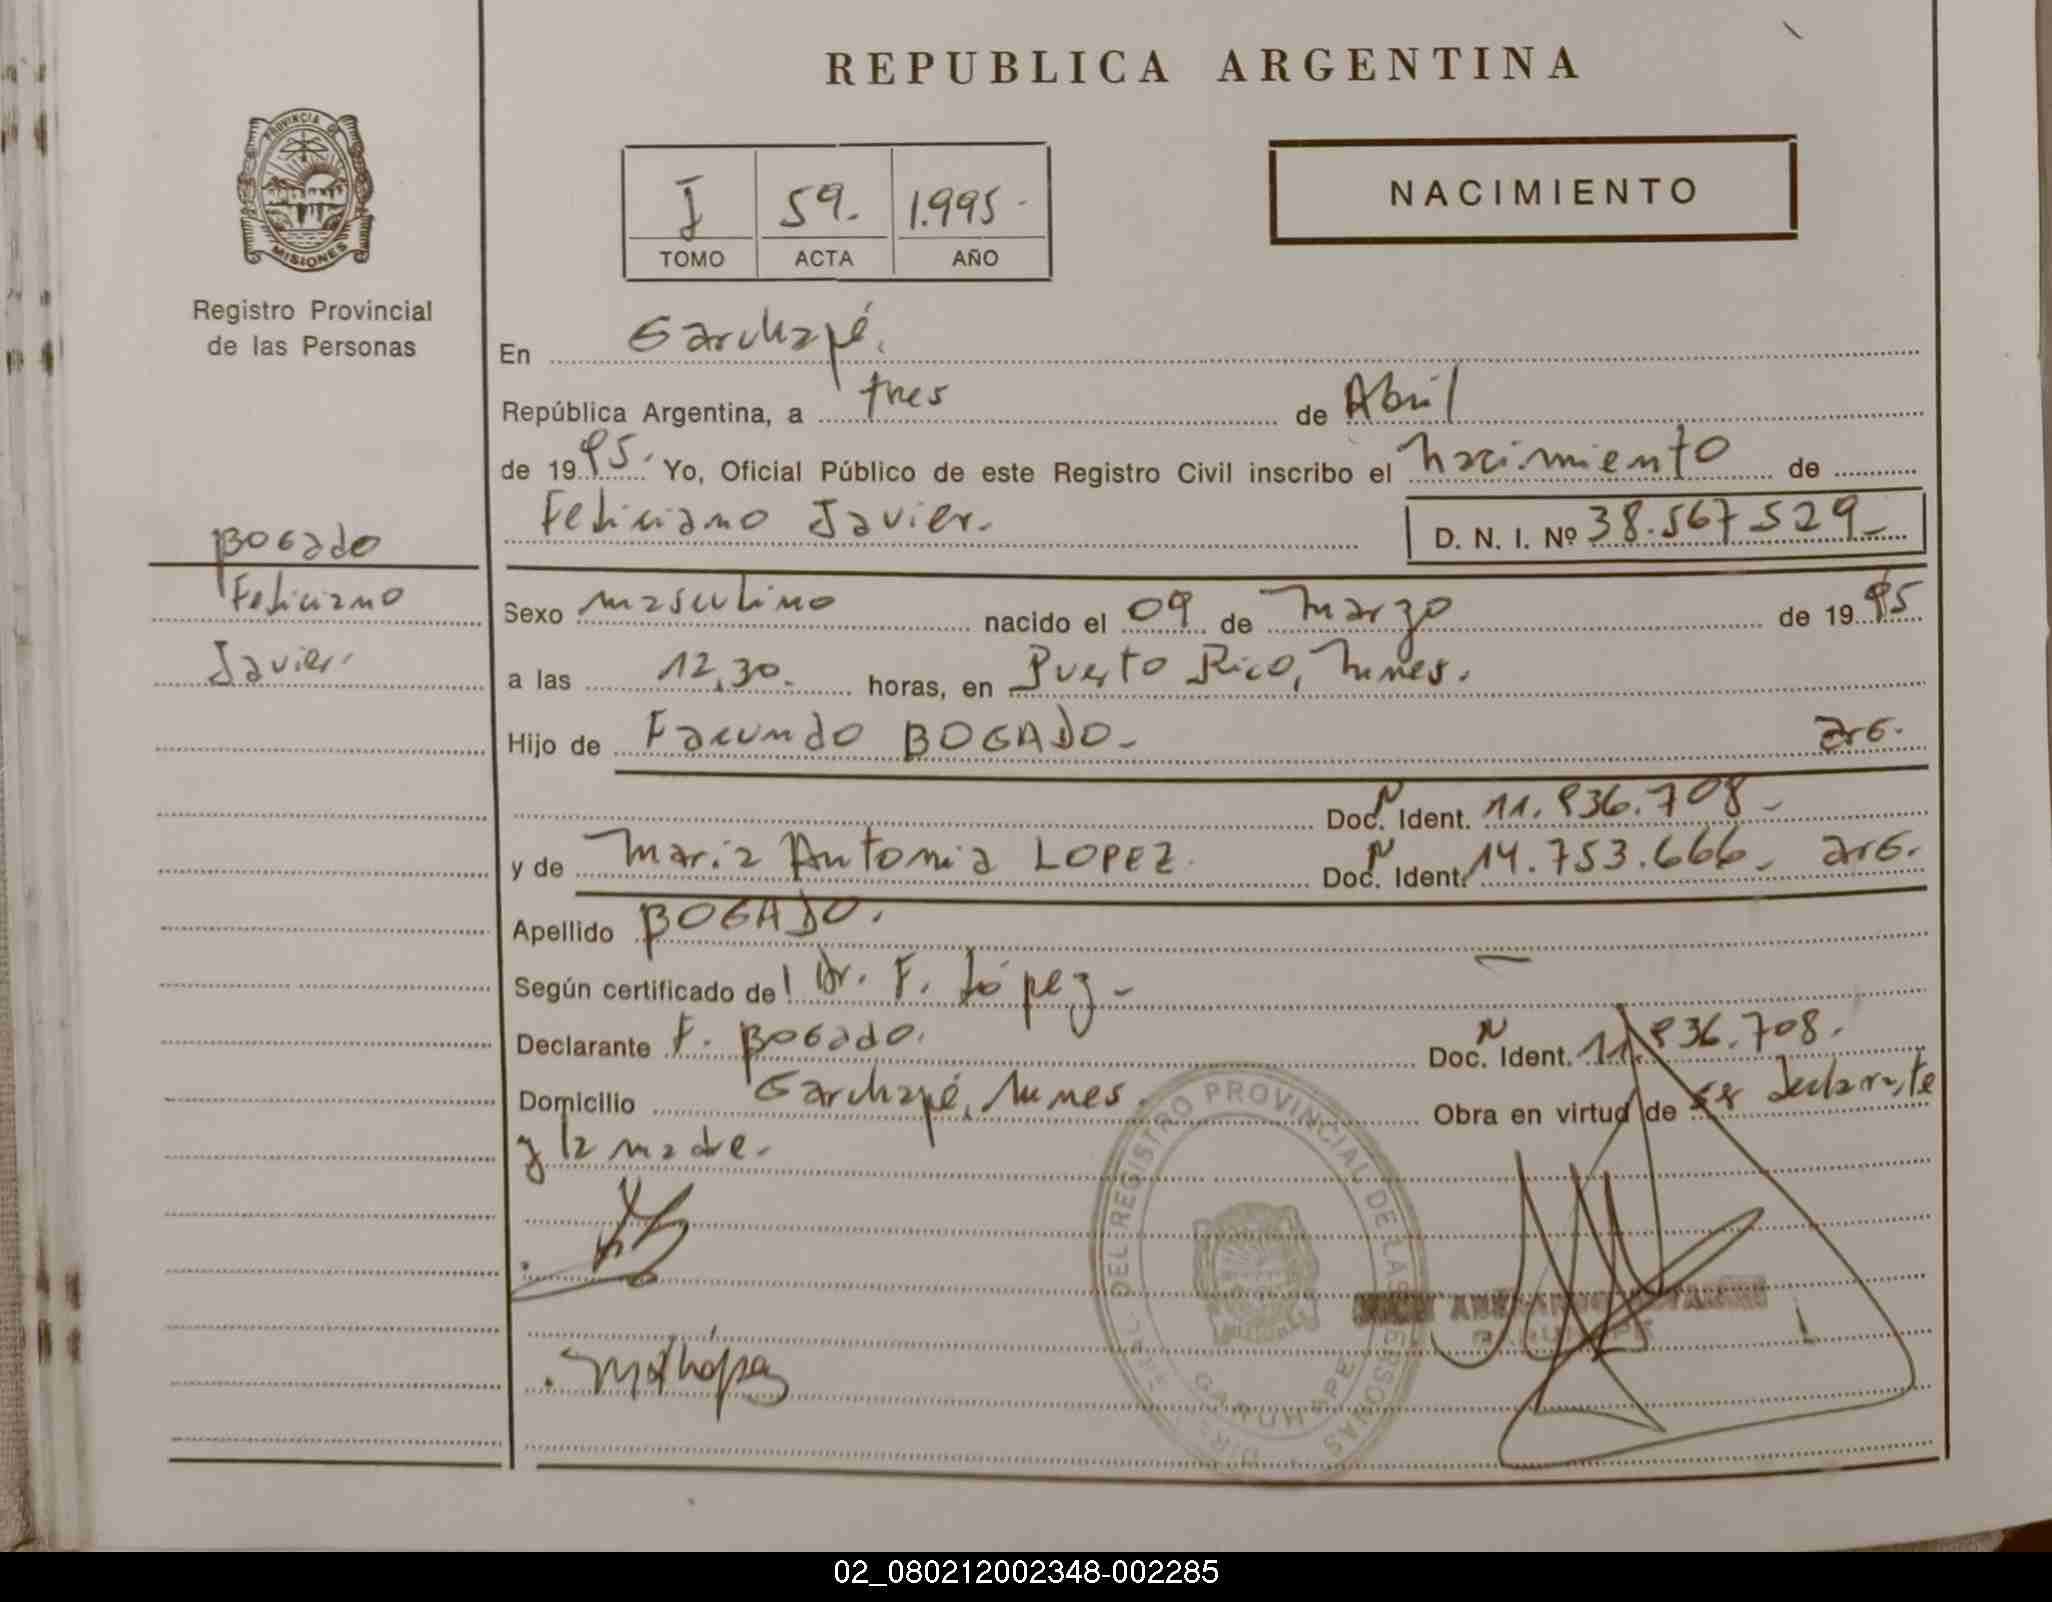 REPUBLICA ARGENTINA
PROVINCIA DE
MISIONES
Registro Provincial
de las Personas
I 59. 1.995-
TOMO ACTA AÑO
NACIMIENTO
En Garuhapé.
República Argentina, a tres de Abril
de 1995. Yo, Oficial Público de este Registro Civil inscribo el nacimiento de
Feliciano Javier. D. N. I. Nº 38.567529-
BOGado
Feliciano
Javier.
Sexo masculino nacido el 09 de marzo de 1995
a las 12,30. horas, en Puerto Rico, Mnes.
Hijo de Facundo BOGADO- arG.
Doc. N Ident. 11.936.708-
y de Maria Antonia LOPEZ. Doc. N Ident. 14.753.666- arG.
Apellido BOGADO.
Según certificado del Dr. F. López-
Declarante F. BOGado. Doc. N Ident. 11.936.708.
Domicilio Garuhapé, Mnes. Obra en virtud de ser declarante
y la madre.
DEL REGISTRO PROVINCIAL DE LAS PERSONAS
GARUHAPE
02_080212002348-002285